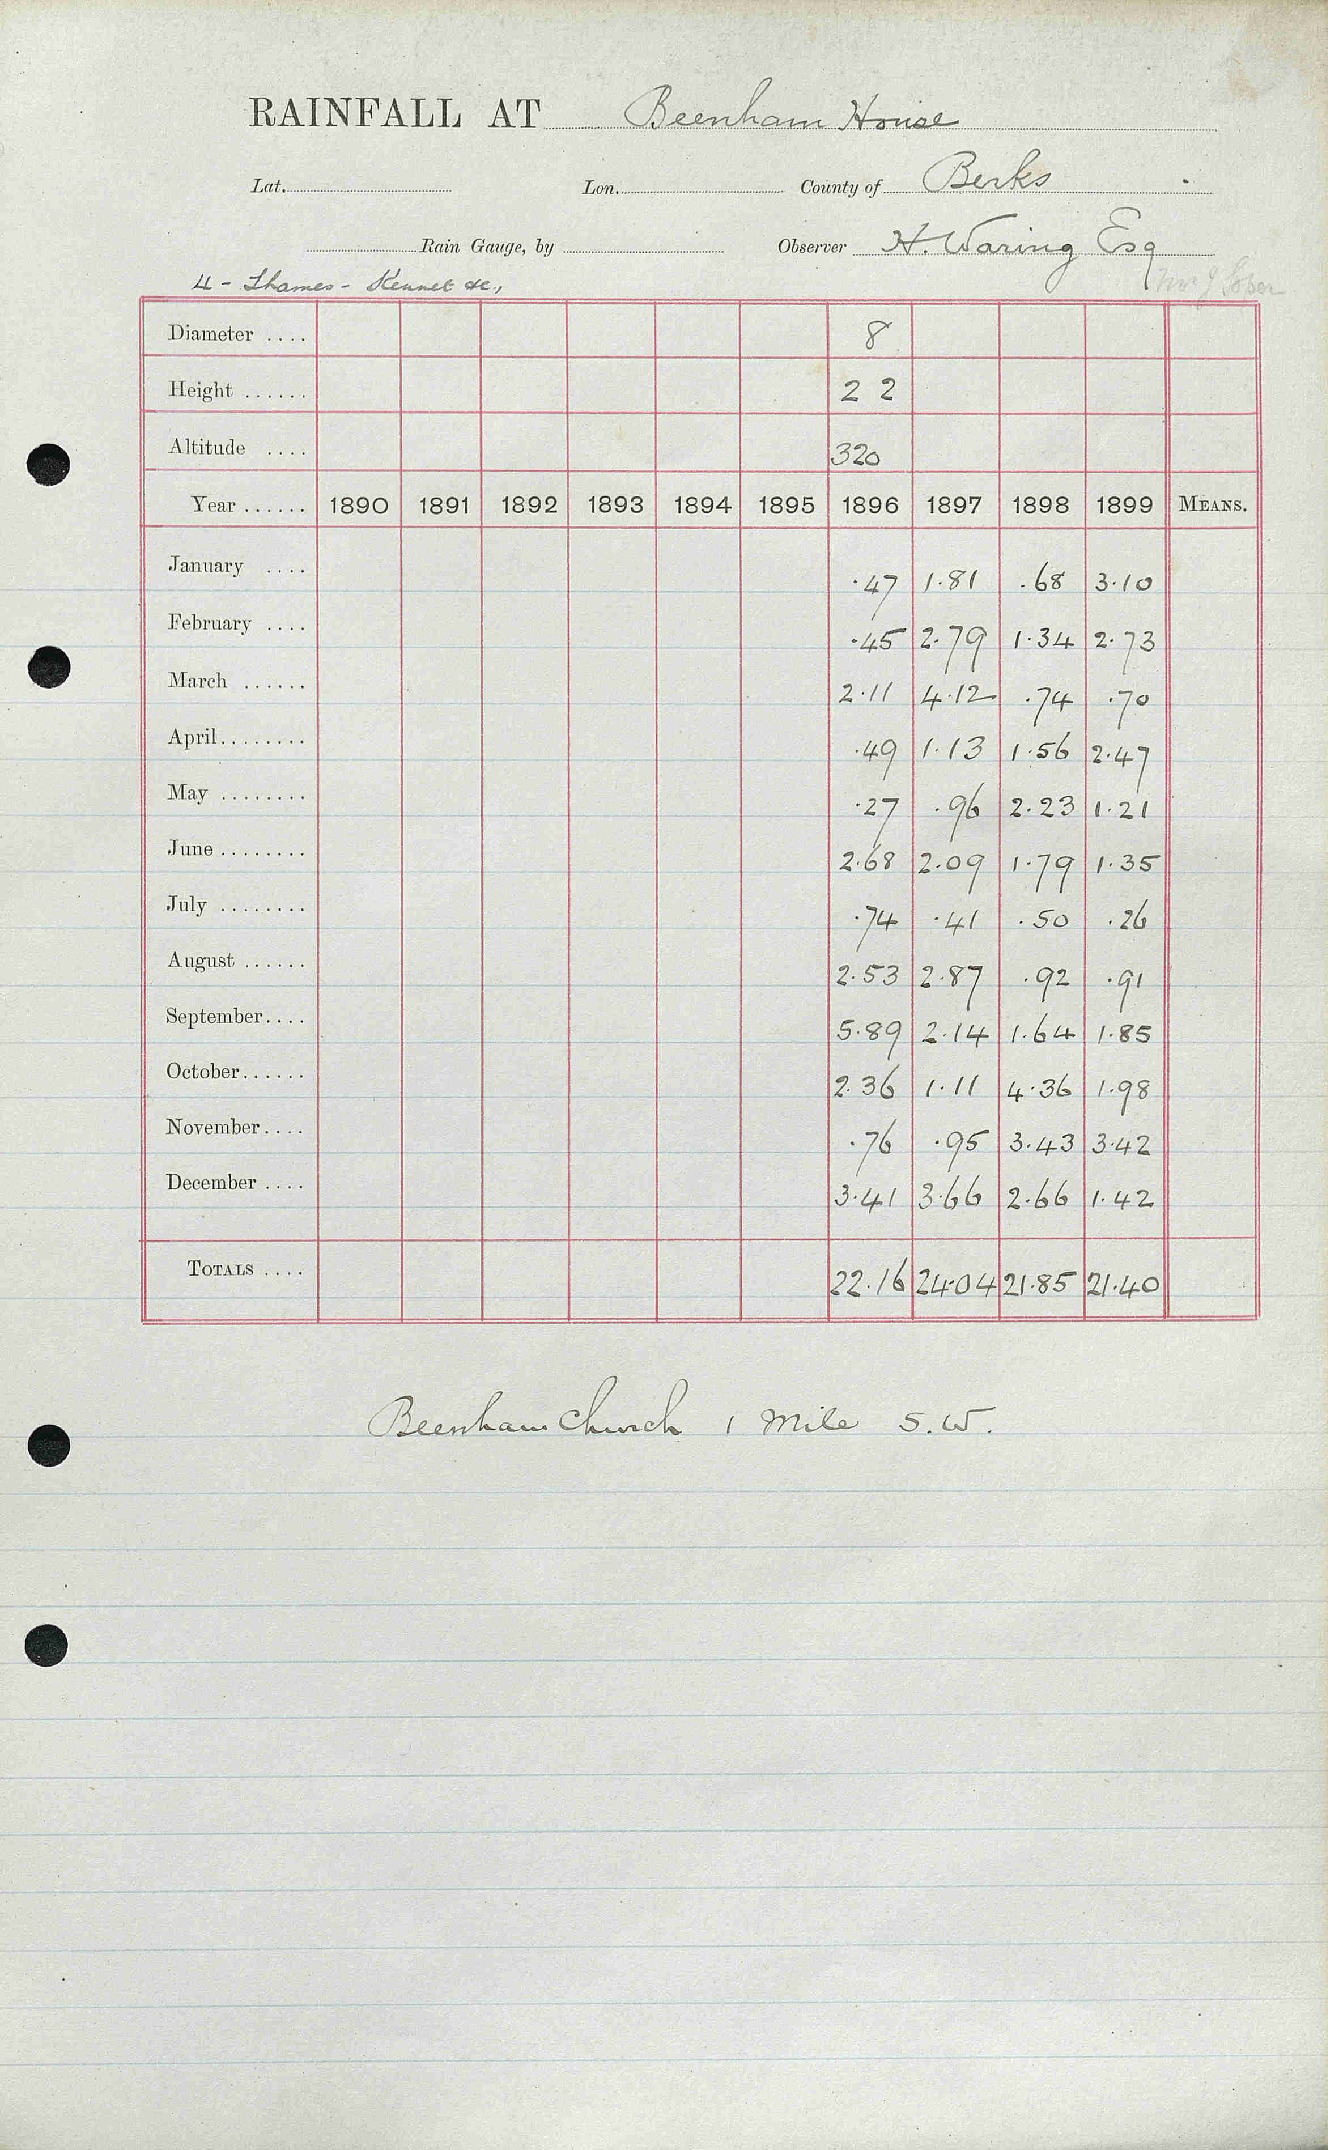 RAINFALL AT Beenham House
Lat. Lon. County of Berks
Rain Gauge, by Observer H. Waring Esq
4 - Thames - Kennet &c,
Mr J Soper
Diameter .... 8
Height ...... 2 2
Altitude .... 320
Year ...... 1890 1891 1892 1893 1894 1895 1896 1897 1898 1899 MEANS.
January .... .47 1.81 .68 3.10
February .... .45 2.79 1.34 2.73
March ...... 2.11 4.12 .74 .70
April........ .49 1.13 1.56 2.47
May ........ .27 .96 2.23 1.21
June ........ 2.68 2.09 1.79 1.35
July ........ .74 .41 .50 .26
August ...... 2.53 2.87 .92 .91
September.... 5.89 2.14 1.64 1.85
October...... 2.36 1.11 4.36 1.98
November.... .76 .95 3.43 3.42
December .... 3.41 3.66 2.66 1.42
TOTALS .... 22.16 24.04 21.85 21.40
Beenham Church 1 Mile S.W.